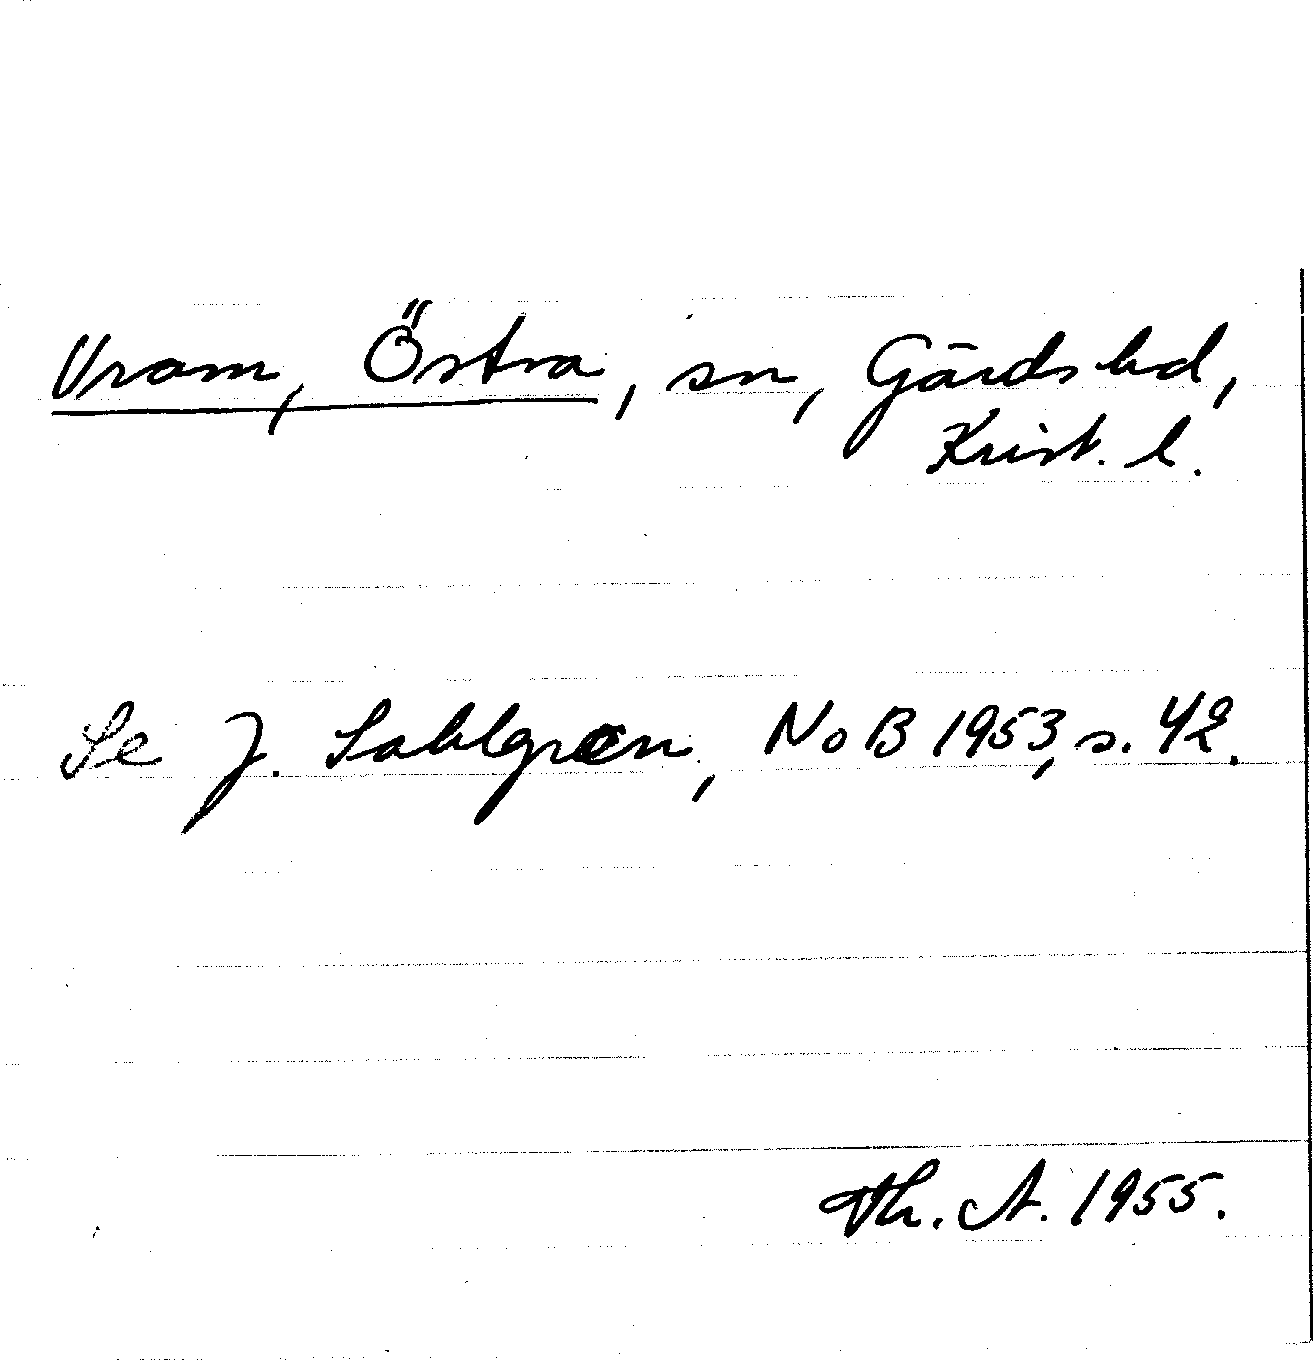 Vram, Östra, sn, Gärds hd,
Krist. l.
Se J. Sahlgren, NoB 1953, s. 42.
Th. A. 1955.